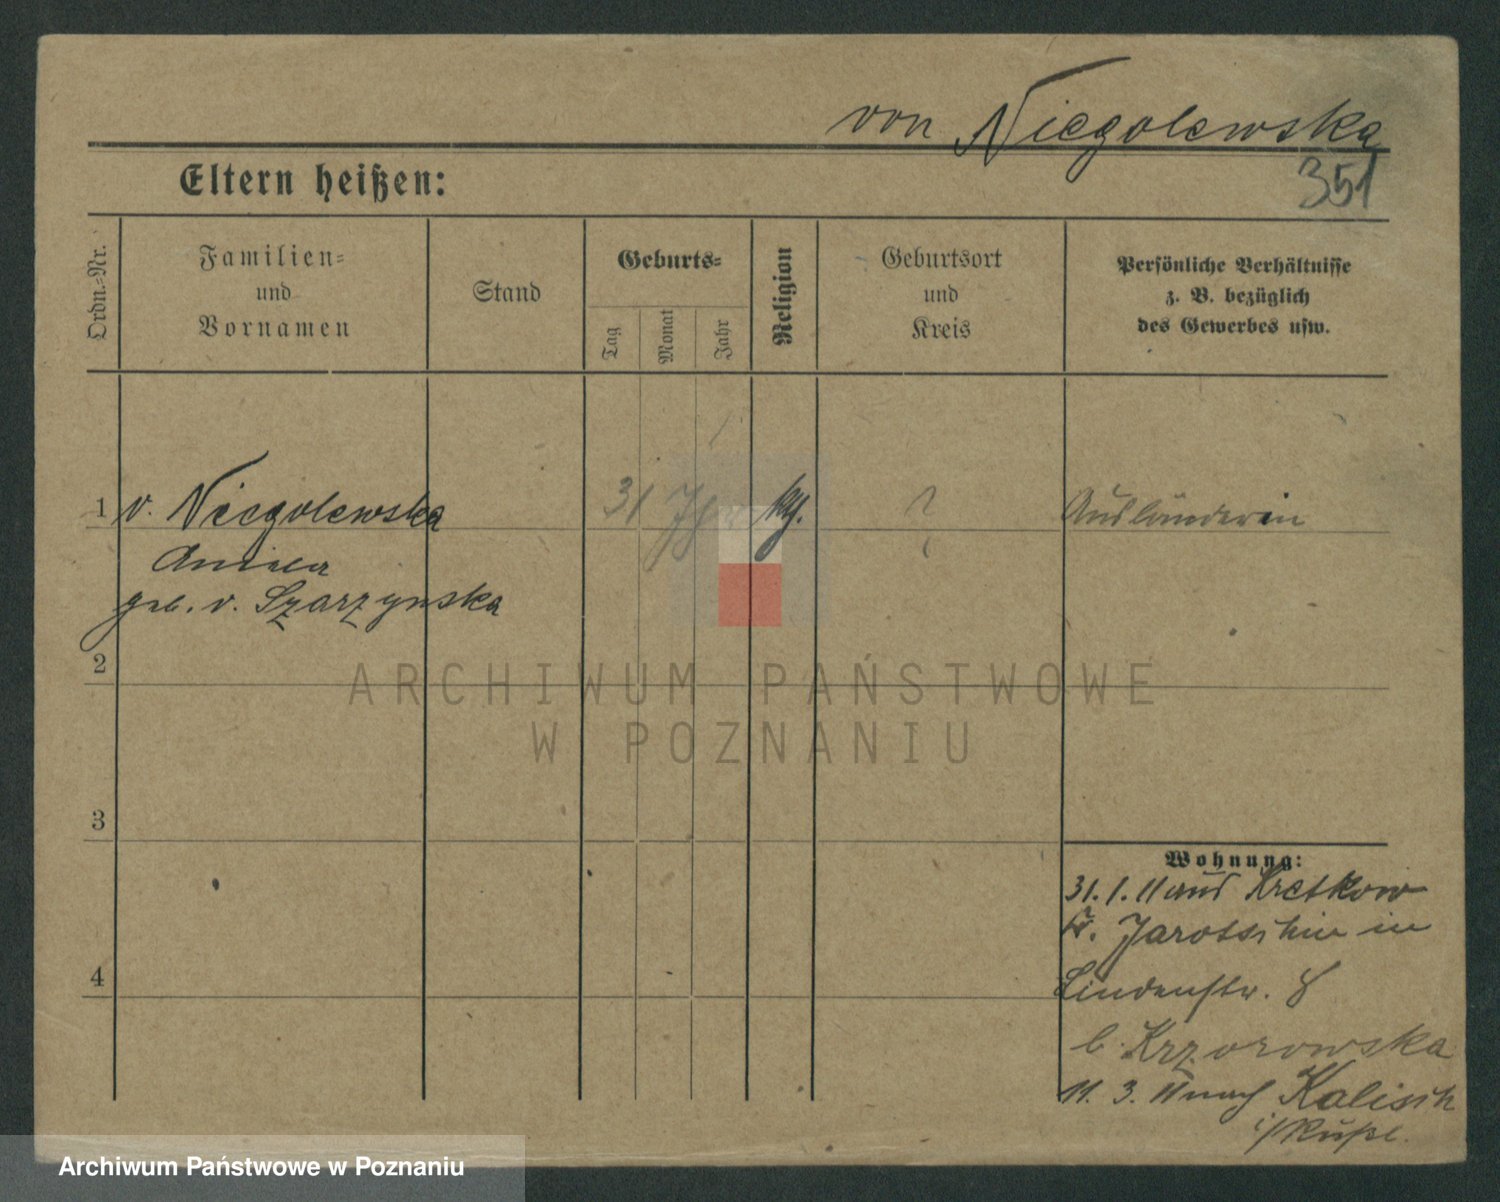 von Niegolewska
351
Eltern heißen:
Ordn.-Nr.
Familien-
und
Vornamen
Stand
Geburts-
Tag
Monat
Jahr
Religion
Geburtsort
und
Kreis
Persönliche Verhältnisse
z. B. bezüglich
des Gewerbes usw.
1 v. Niegolewska 31 kth. ? Ausländerin
Aniela
geb. v. Szarzynska
2
3
4
Wohnung:
31.1.11 aus Kretkow
Kr. Jarotschin in
Lindenstr. 8
b.
11. 3. 11 nach Kalisch
i/Rußl.
ARCHIWUM PAŃSTWOWE
W POZNANIU
Archiwum Państwowe w Poznaniu